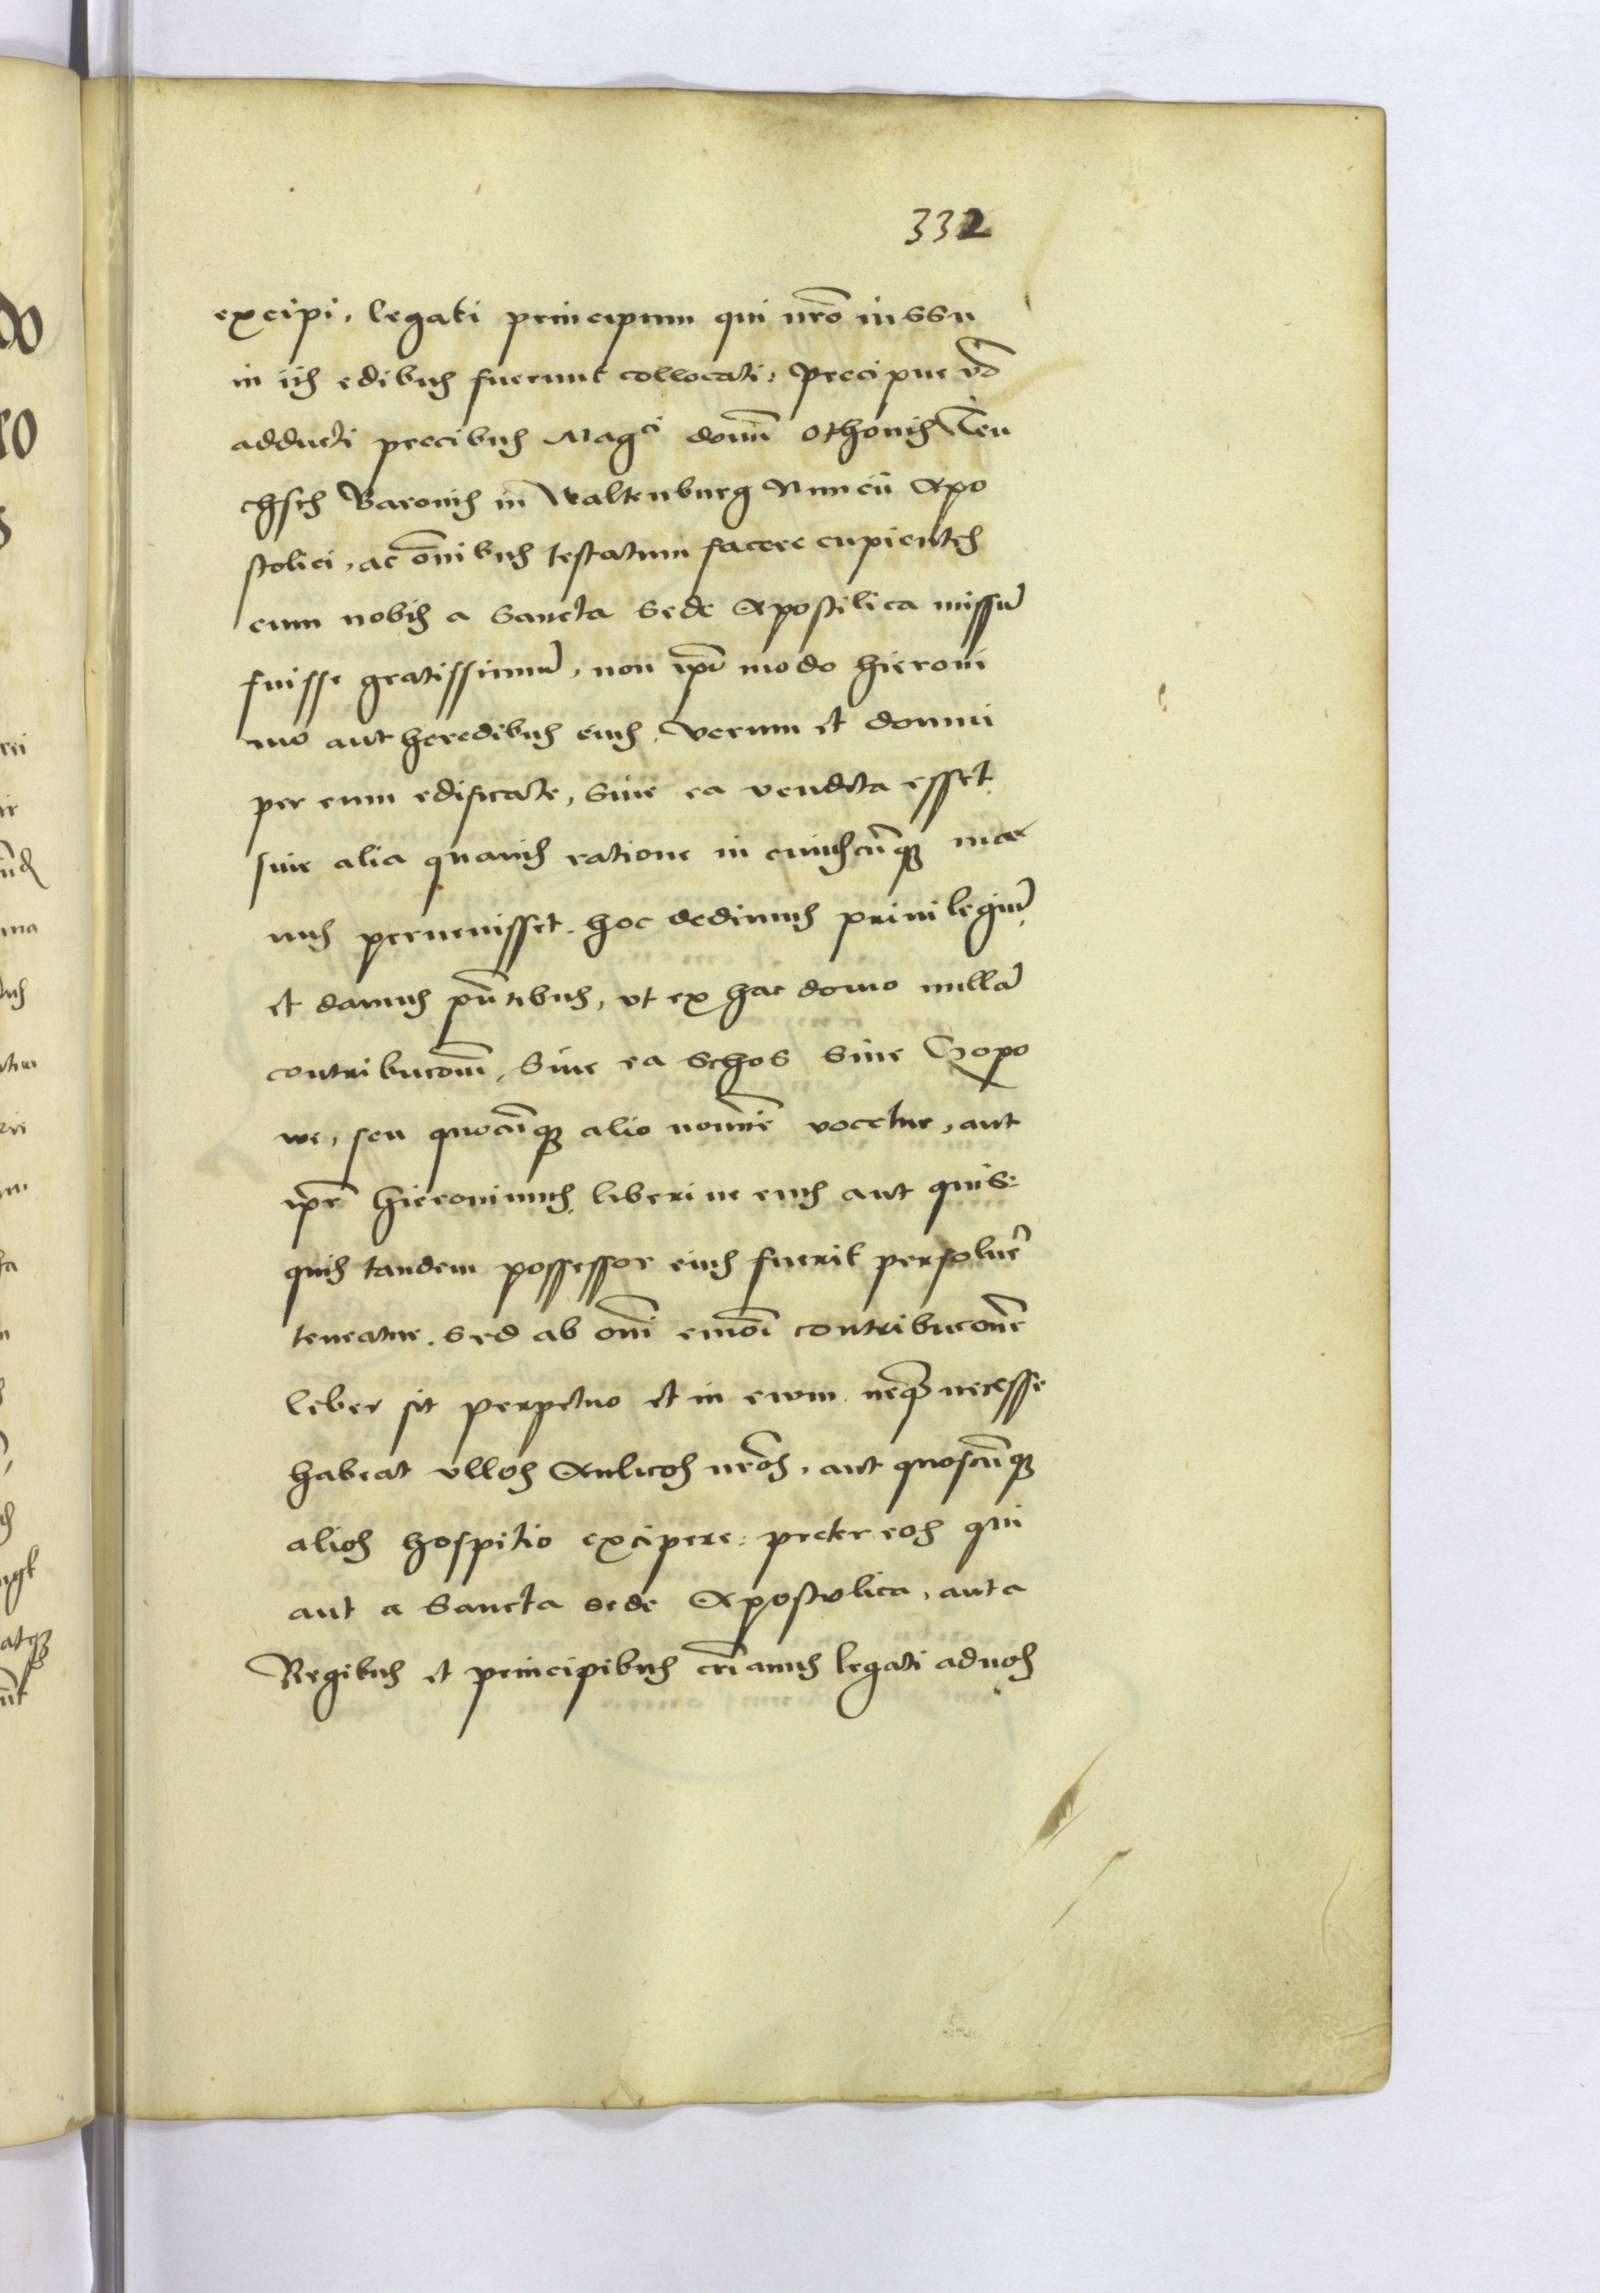 332
excipi, legati principum qui nr̃o iussu
in iis edibus fuerunt collocati: Precipue vó
adducti precibus Magci domĩ Othonis Teu
chses Baronis in Waltenburg Nuncii Apo
stolici, ac om̃ibus testatum facere cupientes
eum nobis a Sancta Sede Apostilica missũ
fuisse gratissimũ, non ip̃i modo Hieroni
mo aut heredibus eius, verum et domui
per eum edificate, Siue ea vendita esset
siue alia quauis ratione in cuiuscũq; ma
nus peruenisset. hoc dedimus priuilegiũ
et damus pñtibus, vt ex hac domo nullã
contribuc̃om̃, Siue ea Schos Siue Czopo
we, seu quocũq; alio nom̃ie vocetur, aut
ip̃e Hieronimus, liberi ue eius aut quis
quis tandem possessor eius fuerit persoluẽ
teneatur. Sed ab om̃i eiuõi contribuc̃one
leber sit perpetuo et in ewm. neq; necesse
habeat vllos Aulicos nr̃os, aut quoscũq;
alios hospitio excipere: preter eos qui
aut a Sancta sede Apostolica, aut a
Regibus et principibus cr̃ianis legati ad nos